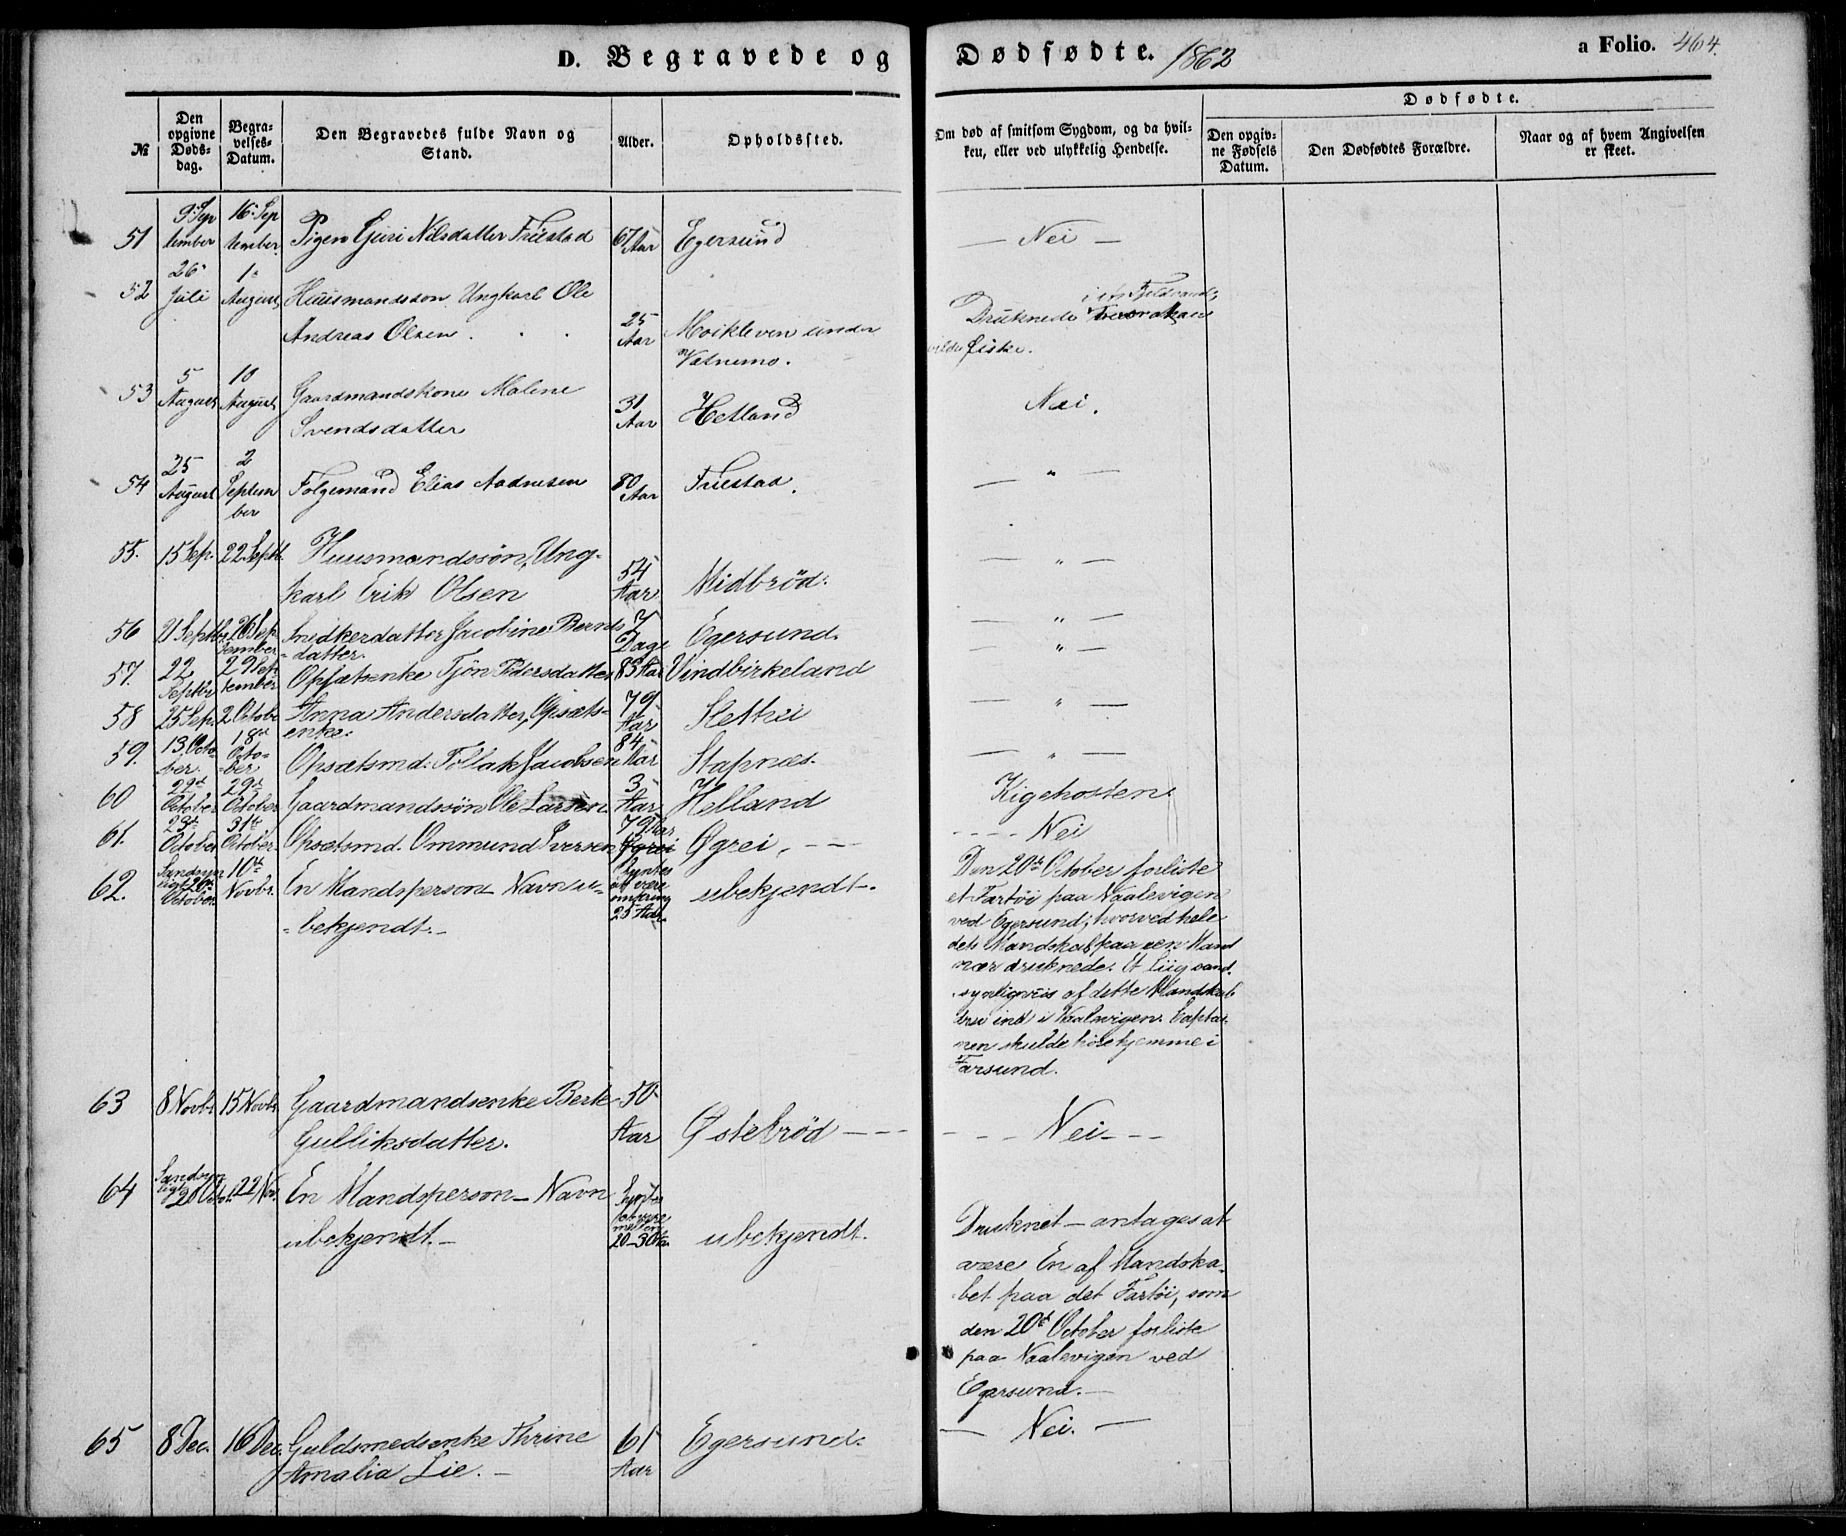 D. Begravede og Dødfødte. 1862 a Folio. 464.
№ Den opgivne Dødsdag. Begravelses-Datum. Den Begravedes fulde Navn og Stand. Alder. Opholdssted. Om død af smitsom Sygdom, og da hvilken, eller ved ulykkelig Hendelse. Dødfødte. Den opgivne Fødsels Datum. Den Dødfødtes Forældre. Naar og af hvem Angivelsen er skeet.
51 9. September 16. September Pigen Guri Nilsdatter Friestad 67 Aar Egersund — Nei —
52 26 Juli 1. August Huusmandssøn Ungkarl Ole
Andreas Olsen. 25 Aar Moikleven under
Vatnemo. Druknede
fiske.
53 5 August 10 August Gaardmandskone Malene
Svendsdatter 31 Aar Hetland Nei.
54 25 August 2 September Folgemand Elias Aadnesen 80 Aar Friestad. — " —
55. 15 Sep. 22 Septb. Huusmandssøn, Ung-
karl Erik Olsen 54 Aar Midbrød. — " —
56 21 Septbr. 26 September Snedkerdatter Jacobine Bernts-
datter. 7 Dage Egersund. — " —
57. 22 Septbr 29 September Opsætsenke Tjøn Pedersdatter 83 Aar Vindbirkeland — " —
58 25 Sep. 2 October Anna Andersdatter, Opsæts-
enke. 79 Aar Slethei — " —
59. 13 October. 18de October Opsætsmd: Tollak Jacobsen 84 Aar Stapnes. — " —
60 22de October 29de October Gaardmandssøn Ole Larsen 3 Aar Helland Kigehosten
61. 23de October 31te October. Opsætsmd. Ommund Iversen 79 Aar Øgrei. — — Nei
62. Sandsynligt 20de October. 10de Novbr. En Mandsperson Navn u-
bekjendt. — Syntes at være omkring 25 Aar ubekjendt. Den 20de October forliste
et Fartøi paa Naalevigen
ved Egersund, hvorved hele
dets Mandskab paa een Mand
nær druknede. Et Liig sand-
synligviis af dette Mandskab
ind i Naalevigen. Captai-
nen skulde høre hjemme i
Farsund.
63 8 Novbr. 15 Novbr. Gaardmandsenke Berte
Gulliksdatter. 50 Aar Østebrød — — — Nei — —
64 Sandsynligt 20 Oct. 22 Nov. En Mandsperson — Navn
ubekjendt. — Syntes at være mellem 20–30 Aar ubekjendt. Druknet — antages at
være En af Mandska-
bet paa det Fartøi, som
den 20de October forliste
paa Naalevigen ved
Egersund. —
65 8 Dec. 16 Dec. Guldsmedsenke Thrine
Amalia Lie. — 61 Aar Egersund. — Nei. —